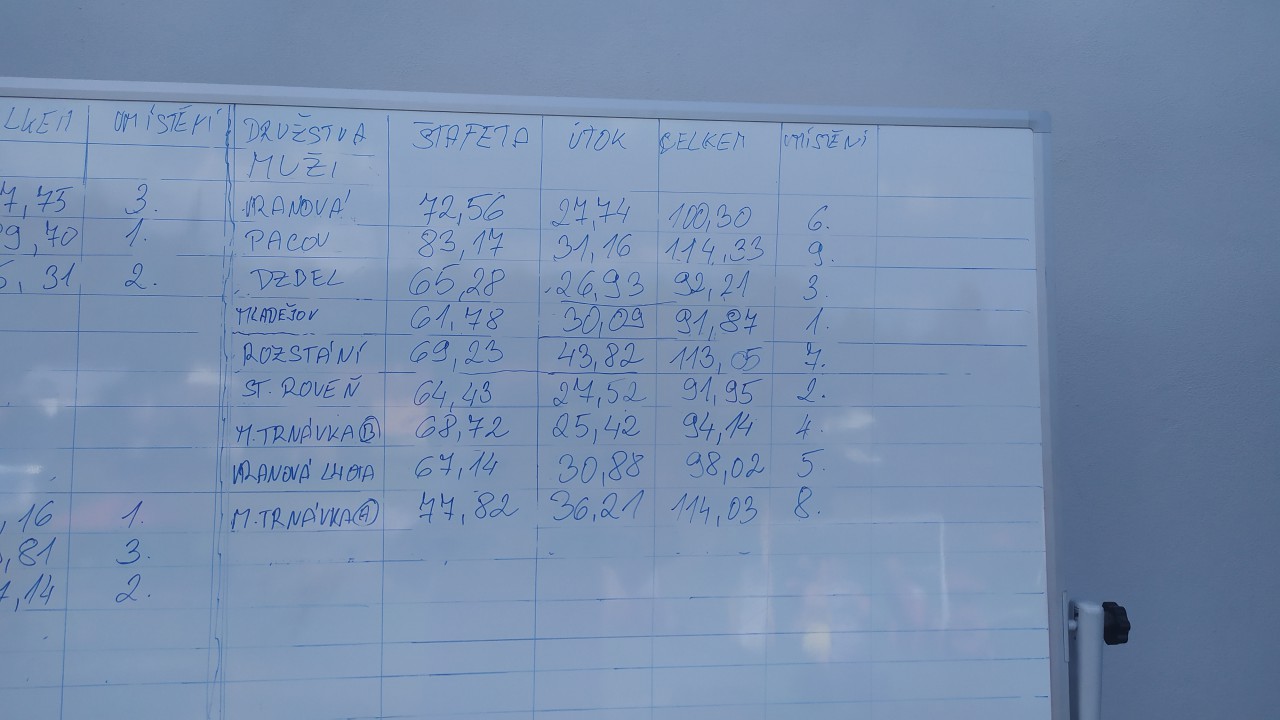 LKEM UMÍSTĚNÍ DRUŽSTVA ŠTAFETA ÚTOK CELKEM UMÍSTĚNÍ
MUŽI
7,75 3. VRANOVÁ 72,56 27,74 100,30 6.
9,70 1. PACOV 83,17 31,16 114,33 9.
5,31 2. DZDEL 65,28 26,93 92,21 3.
MLADĚJOV 61,78 30,09 91,87 1.
ROZSTÁNÍ 69,23 43,82 113,05 7.
ST. ROVEŇ 64,43 27,52 91,95 2.
M.TRNÁVKA B 68,72 25,42 94,14 4.
VRANOVÁ LHOTA 67,14 30,88 98,02 5.
,16 1. M.TRNÁVKA A 77,82 36,21 114,03 8.
,81 3.
7,14 2.